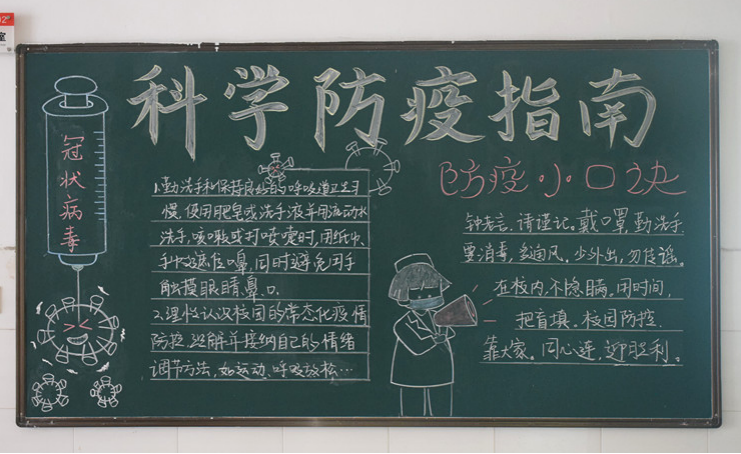 科学防疫指南
冠状病毒
1.勤洗手和保持良好的呼吸道卫生习
惯,使用肥皂或洗手液并用流动水
洗手,咳嗽或打喷嚏时,用纸巾、
手帕遮住口鼻,同时避免用手
触摸眼睛、鼻、口。
2.理性认识校园的常态化疫情
防控,理解并接纳自己的情绪
调节方法,如运动、呼吸放松…
防疫小口诀
钟老言,请谨记。戴口罩,勤洗手
要消毒,多通风。少外出,勿传谣。
在校内,不隐瞒。闲时间,
把育填。校园防控,
靠大家。同心连,迎胜利。